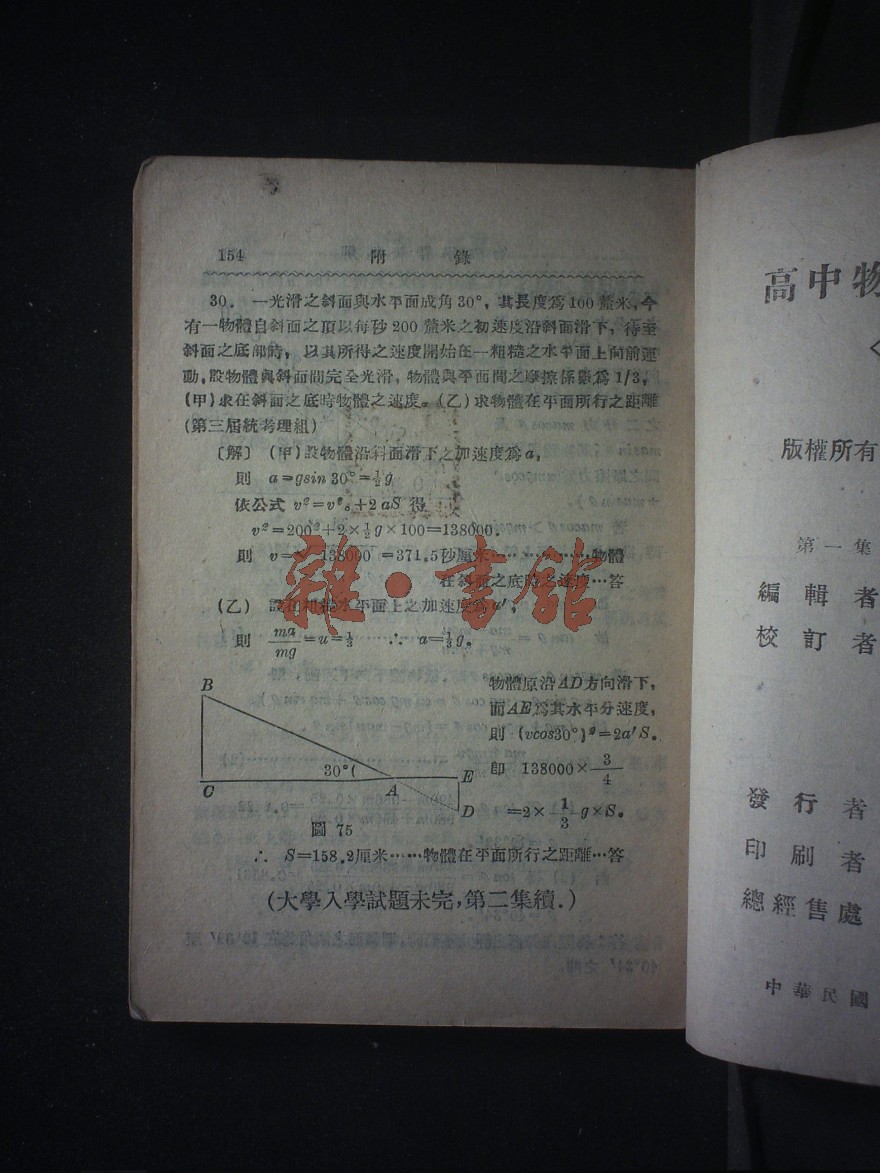 154 附 錄
30. 一光滑之斜面與水平面成角30°, 其長度爲100 釐米, 今
有一物體自斜面之頂以每秒 200 釐米之初速度沿斜面滑下, 待至
斜面之底部時, 以其所得之速度開始在一粗糙之水平面上向前運
動, 設物體與斜面間完全光滑, 物體與平面間之摩擦係數爲 1/3,
(甲)求在斜面之底時物體之速度。(乙)求物體在平面所行之距離
(第三屆統考理組)
〔解〕 (甲)設物體沿斜面滑下之加速度爲a,
則 a=gsin 30°=½g
依公式 v²=v²₀+2 aS 得
v²=200²+2×½g×100=138000.
則 v=√138000 =371.5秒厘米…………物體
在斜面之底時之速度…答
(乙) 設在粗糙水平面上之加速度爲a′,
則 ma/mg=u=⅓ ∴ a=⅓g。
物體原沿AD方向滑下,
而AE爲其水平分速度,
則 (vcos30°)²=2a′S。
即 138000×3/4
=2×1/3 g×S。
B
30°
C
A
E
D
圖 75
∴ S=158.2厘米……物體在平面所行之距離…答
(大學入學試題未完, 第二集續.)
雜·書館
高中物
版權所有
第一集
編輯者
校訂者
發行者
印刷者
總經售處
中華民國